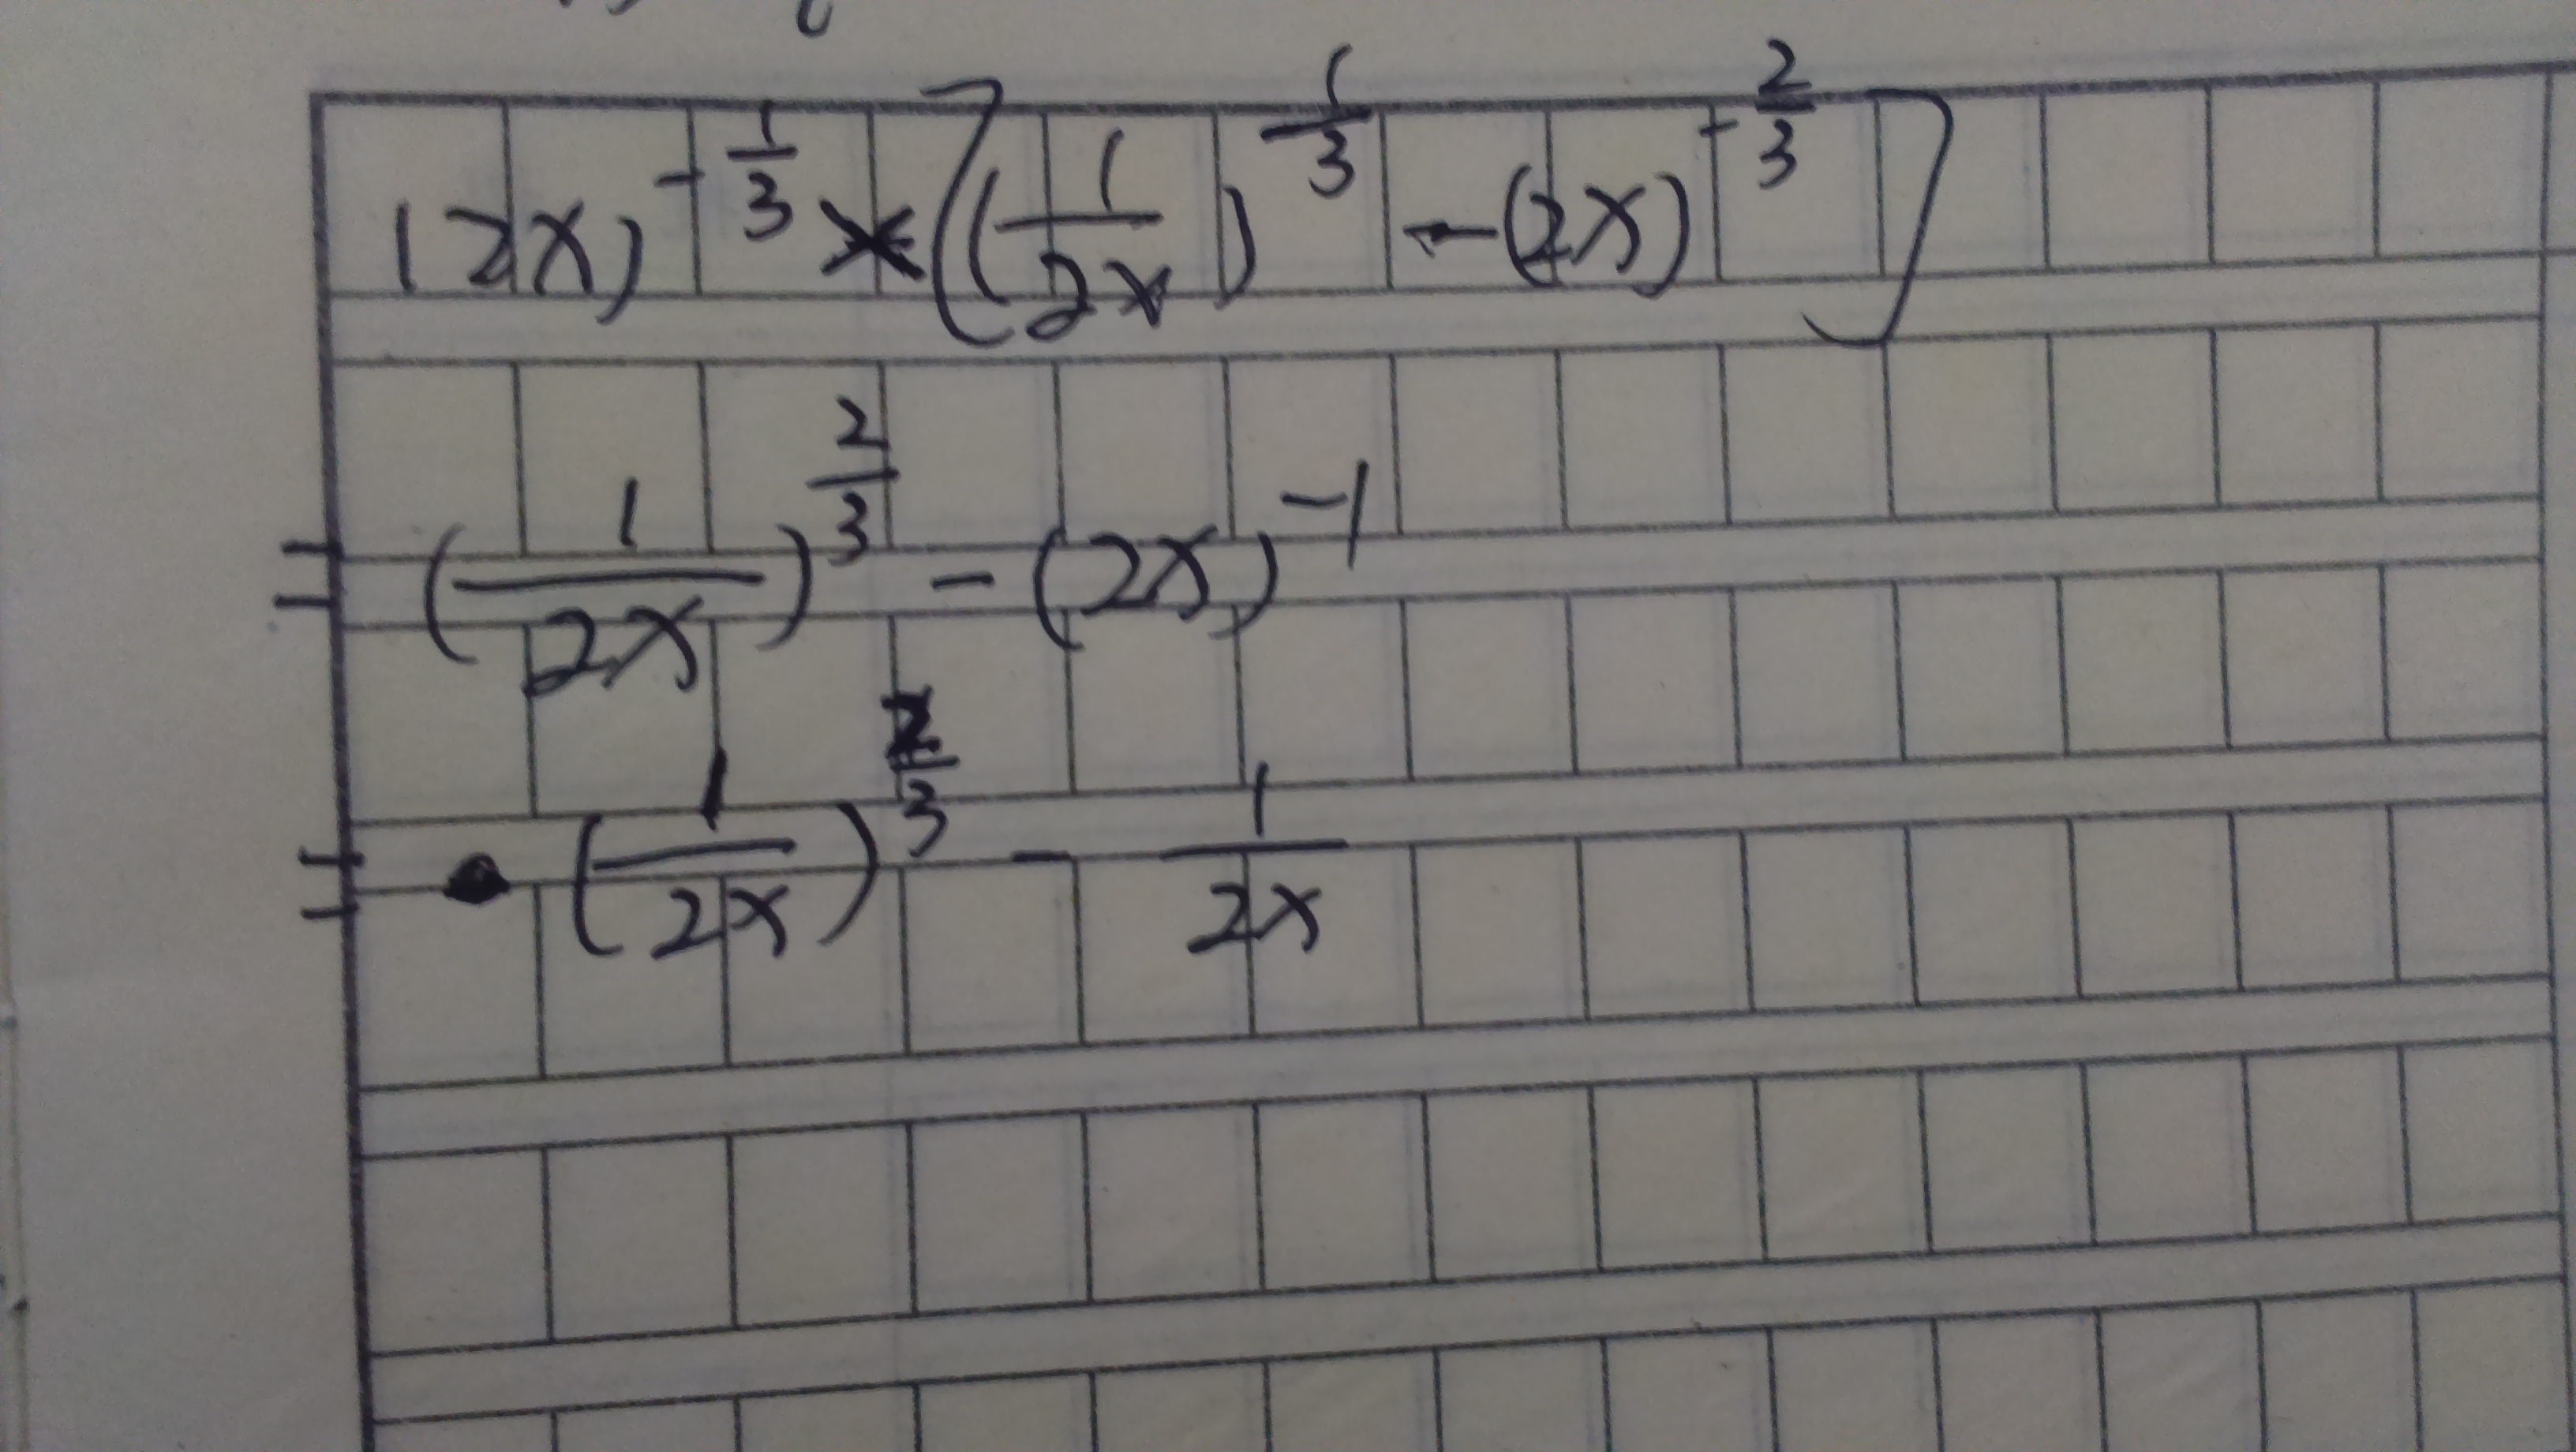 (2x)^{-\frac{1}{3}} × [(\frac{1}{2x})^{\frac{1}{3}} - (2x)^{-\frac{2}{3}}]
= (\frac{1}{2x})^{\frac{2}{3}} - (2x)^{-1}
= (\frac{1}{2x})^{\frac{2}{3}} - \frac{1}{2x}